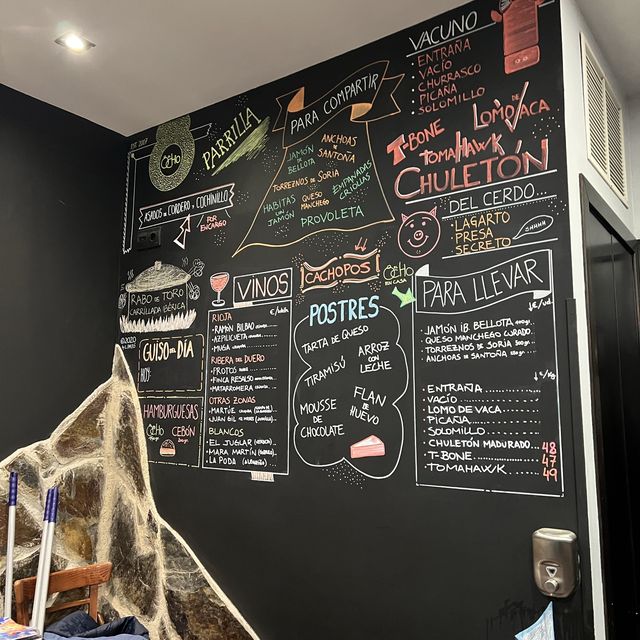 EST. 2007
OCHO
PARRILLA
ASADOS DE CORDERO Y COCHINILLO
POR
ENCARGO
PARA COMPARTIR
JAMÓN
DE
BELLOTA
ANCHOAS
DE
SANTOÑA
TORREZNOS DE SORIA
HABITAS
CON
JAMÓN
QUESO
MANCHEGO
EMPANADAS
CRIOLLAS
PROVOLETA
VACUNO
ENTRAÑA
VACÍO
CHURRASCO
PICAÑA
SOLOMILLO
LOMO DE VACA
T-BONE
TOMAHAWK
CHULETÓN
DEL CERDO...
LAGARTO
PRESA
SECRETO
RABO DE TORO
CARRILLADA IBÉRICA
©2020
GUISO DEL DÍA
HOY:
HAMBURGUESAS
OCHO
CEBÓN
VINOS
RIOJA
RAMÓN BILBAO
AZPILICUETA
MUGA
RIBERA DEL DUERO
FROTOS
FINCA RESALSO
MATARROMERA
OTRAS ZONAS
MARTÚE
JUAN GIL
BLANCOS
EL JUGLAR
MARA MARTÍN
LA PODA
CACHOPOS
POSTRES
TARTA DE QUESO
TIRAMISÚ
ARROZ
CON
LECHE
MOUSSE
DE
CHOCOLATE
FLAN
DE
HUEVO
OCHO
EN CASA
PARA LLEVAR
€/ud.
JAMÓN IB. BELLOTA
QUESO MANCHEGO CURADO
TORREZNOS DE SORIA
ANCHOAS DE SANTOÑA
€/Kg
ENTRAÑA
VACÍO
LOMO DE VACA
PICAÑA
SOLOMILLO
CHULETÓN MADURADO 48
T-BONE 47
TOMAHAWK 49